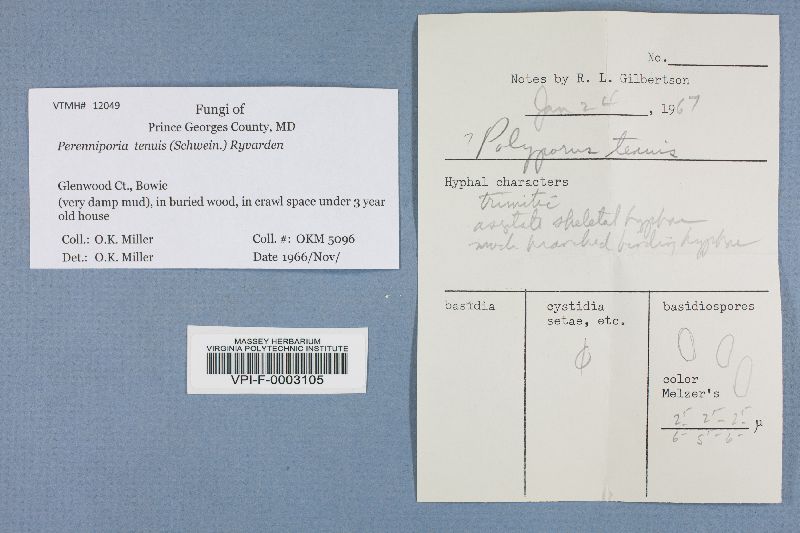 VTMH# 12049
Fungi of
Prince Georges County, MD
Perenniporia tenuis (Schwein.) Ryvarden
Glenwood Ct., Bowie
(very damp mud), in buried wood, in crawl space under 3 year
old house
Coll.: O.K. Miller Coll. #: OKM 5096
Det.: O.K. Miller Date 1966/Nov/
MASSEY HERBARIUM
VIRGINIA POLYTECHNIC INSTITUTE
VPI-F-0003105
No.
Notes by R. L. Gilbertson
Jan 24, 1967
? Polyporus tenuis
Hyphal characters
trimitic
aseptate skeletal hyphae
much branched binding hyphae
basidia
cystidia
setae, etc.
basidiospores
color
Melzer's
μ